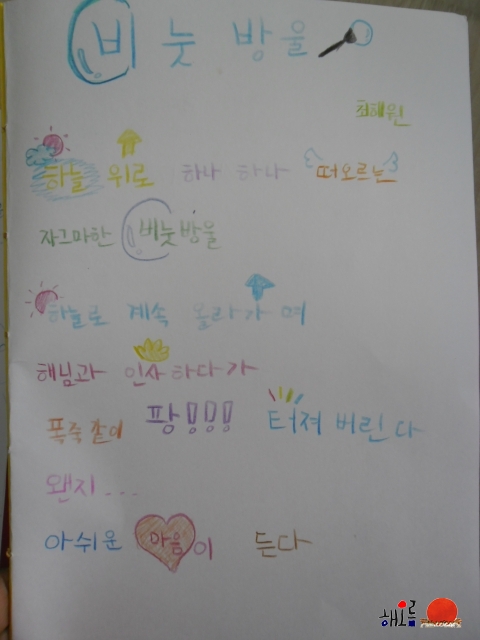 비눗방울
최해원
하늘 위로 하나 하나 떠오르는
자그마한 비눗방울
하늘로 계속 올라가며
해님과 인사하다가
폭죽같이 팡!!!! 터져 버린다
왠지...
아쉬운 마음이 든다
해오름